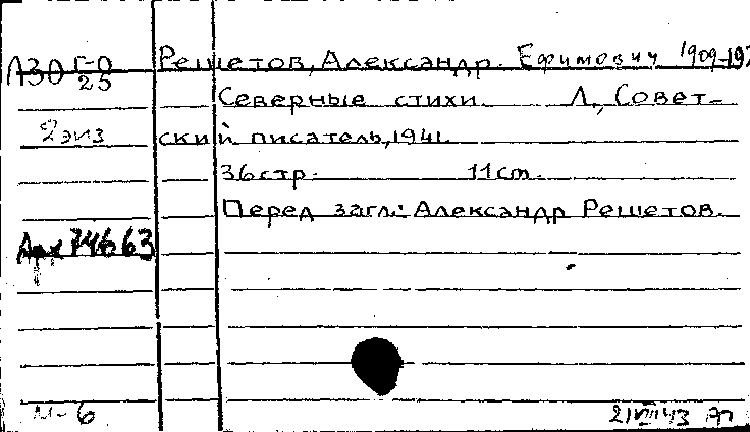 Л30 Г-0 Решетов, Александр. Ефимович 1909-197
25
Северные стихи. Л., Совет-
2 экз ский писатель, 1941.
36 стр. 11 cm.
Перед загл.: Александр Решетов.
Арх 74663
м-6 21/VII 43